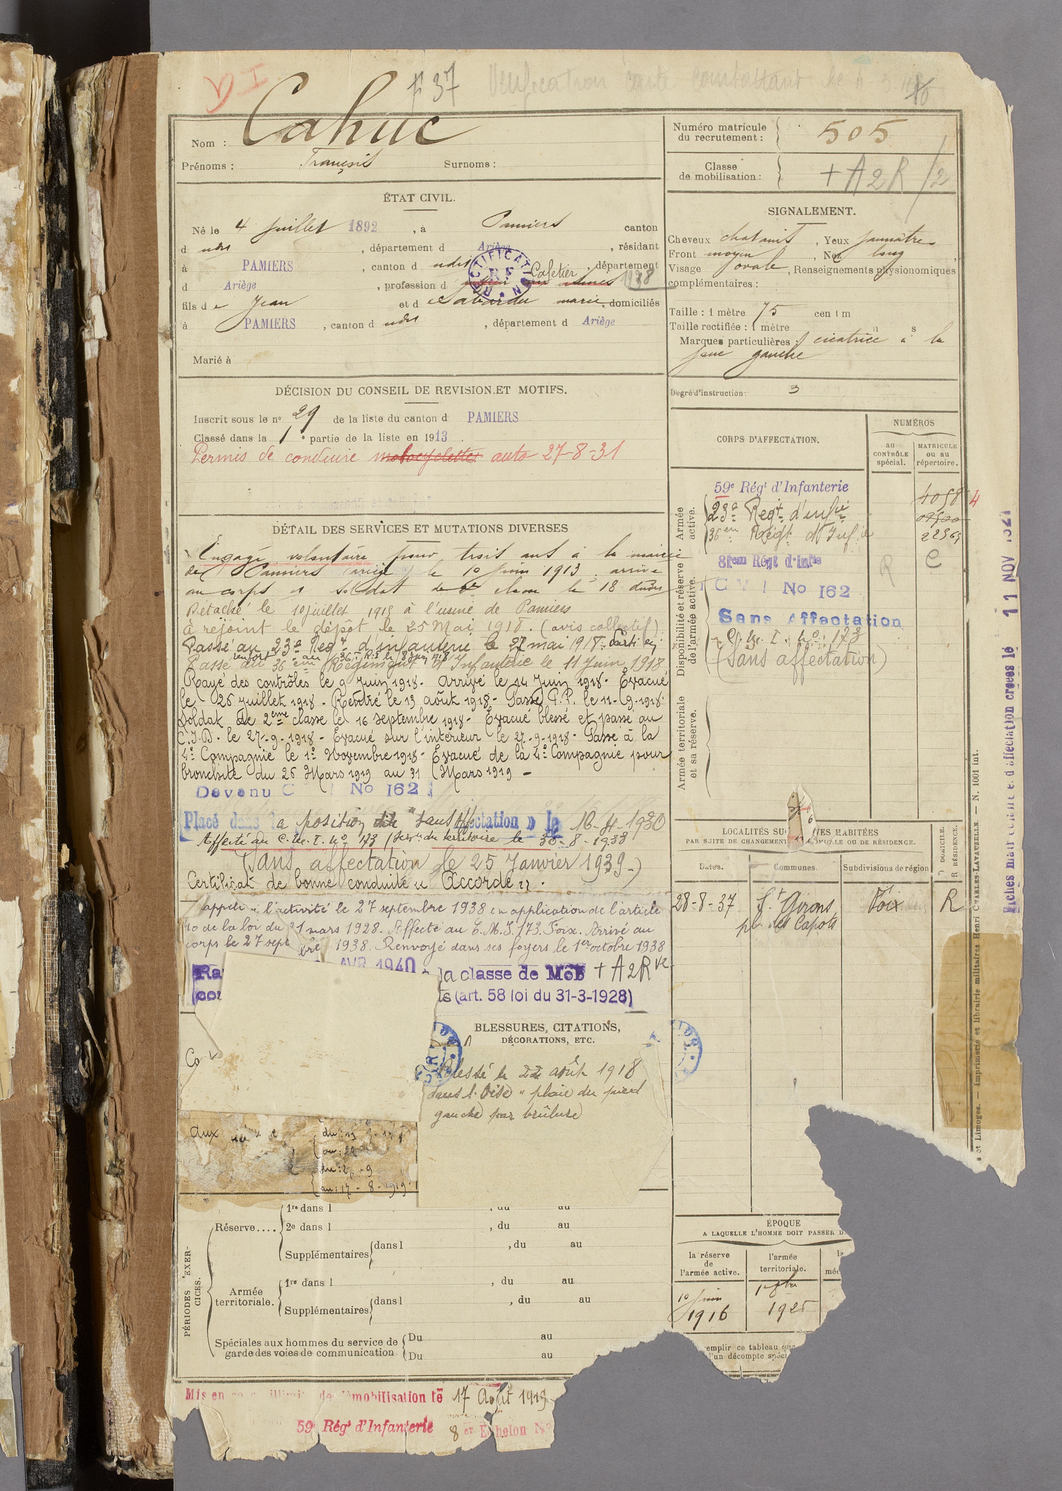 p 37 Verification carte combattant le
Cahuc
Nom :
Prénoms : François Surnoms :
Numéro matricule du recrutement : 505
Classe de mobilisation : + A2R /2
ÉTAT CIVIL.
Né le 4 juillet 1892, à Pamiers canton
d udit, département d Ariège, résidant
à PAMIERS, canton d udit, département
d Ariège, profession d Cafetier 1938
fils d e Jean et d e Labarda marie, domiciliés
à PAMIERS, canton d udit, département d Ariège
Marié à
RECTIFICATION
SIGNALEMENT.
Cheveux chatains, Yeux jaunâtres
Front moyen, Nez long
Visage ovale, Renseignements physionomiques
complémentaires :
Taille : 1 mètre 75 centim
Taille rectifiée : 1 mètre
Marques particulières : cicatrice à la
joue gauche
Degré d'instruction : 3
DÉCISION DU CONSEIL DE REVISION ET MOTIFS.
Inscrit sous le n° 29 de la liste du canton d PAMIERS
Classé dans la 1e partie de la liste en 1913
Permis de conduire motocyclettes auto 27-8-31
DÉTAIL DES SERVICES ET MUTATIONS DIVERSES
Engagé volontaire pour trois ans à la mairie
de Pamiers le 10 juin 1913, arrivé
au corps et soldat de 2e classe le 18 dudit
Détaché le 10 juillet 1915 à l'usine de Pamiers
à rejoint le dépôt le 25 Mai 1918. (avis collectif)
Passé au 23e Reg t d'infanterie le 27 mai 1918.
Passé au 36 ème Régiment d'Infanterie le 11 Juin 1918
Rayé des contrôles le 9 Juin 1918. Arrivé le 14 Juin 1918. Évacué
le 25 juillet 1918. Rentré le 13 août 1918. Passé G.P. le 11-9-1918.
Soldat de 2ème classe le 16 septembre 1918. Évacué blessé et passé au
C.I.D. le 27-9-1918. Évacué sur l'intérieur le 27-9-1918. Passé à la
4e Compagnie le 1er Novembre 1918. Évacué de la 4e Compagnie pour
bronchite du 25 Mars 1919 au 31 Mars 1919 -
Devenu C No 162
Placé dans la position dite "sans affectation" le 16-4-1930
Affecté au C.M.I. n° 173 (serv. du territoire le 30-8-1938
(Sans affectation le 25 Janvier 1939.)
Certificat de bonne conduite "Accordé".
appelé à l'activité le 27 septembre 1938 en application de l'article
40 de la loi du 31 mars 1928. Affecté au C.M.I. 173 Foix. Arrivé au
corps le 27 septbre 1938. Renvoyé dans ses foyers le 1er octobre 1938
Ra AVR 1940 la classe de Mob + A2R
(art. 58 loi du 31-3-1928)
CORPS D'AFFECTATION.
NUMÉROS
AU CONTRÔLE spécial.
MATRICULE OU AU répertoire.
Armée active.
59e Régt d'Infanterie
23e Regt d'infie
36em Régt d'Inf.ie
Disponibilité et réserve de l'armée active.
81em Régt d'Infie
No 162
Sans Affectation
C.M.I. n° 173
(Sans affectation)
R C
Armée territoriale et sa réserve.
11 NOV 1921
LOCALITÉS SUCCESSIVES HABITÉES
PAR SUITE DE CHANGEMENT DE DOMICILE OU DE RÉSIDENCE.
Dates. Communes. Subdivisions de région
D DOMICILE. R RÉSIDENCE.
28-8-37 St Girons Foix R
pl. des Capots
Limoges. — Imprimerie et librairie militaires Henri CHARLES-LAVAUZELLE. — N. 1001 int.
BLESSURES, CITATIONS,
DÉCORATIONS, ETC.
Blessé le 22 août 1918
dans l'Oise "plaie du pied
gauche par brûlure
Co
aux
PÉRIODES D'EXERCICES.
Réserve.... 1re dans l , du au
2e dans l , du au
Supplémentaires dans l , du au
Armée territoriale. 1re dans l , du au
Supplémentaires dans l , du au
Spéciales aux hommes du service de garde des voies de communication Du au
Du au
ÉPOQUE
A LAQUELLE L'HOMME DOIT PASSER D
la réserve de l'armée active. l'armée territoriale.
10 juin 1916
1925
emplir ce tableau
un décompte
Mis en congé illimité de démobilisation le 17 Août 1919
59e Régt d'Infanterie 8e Echelon N°